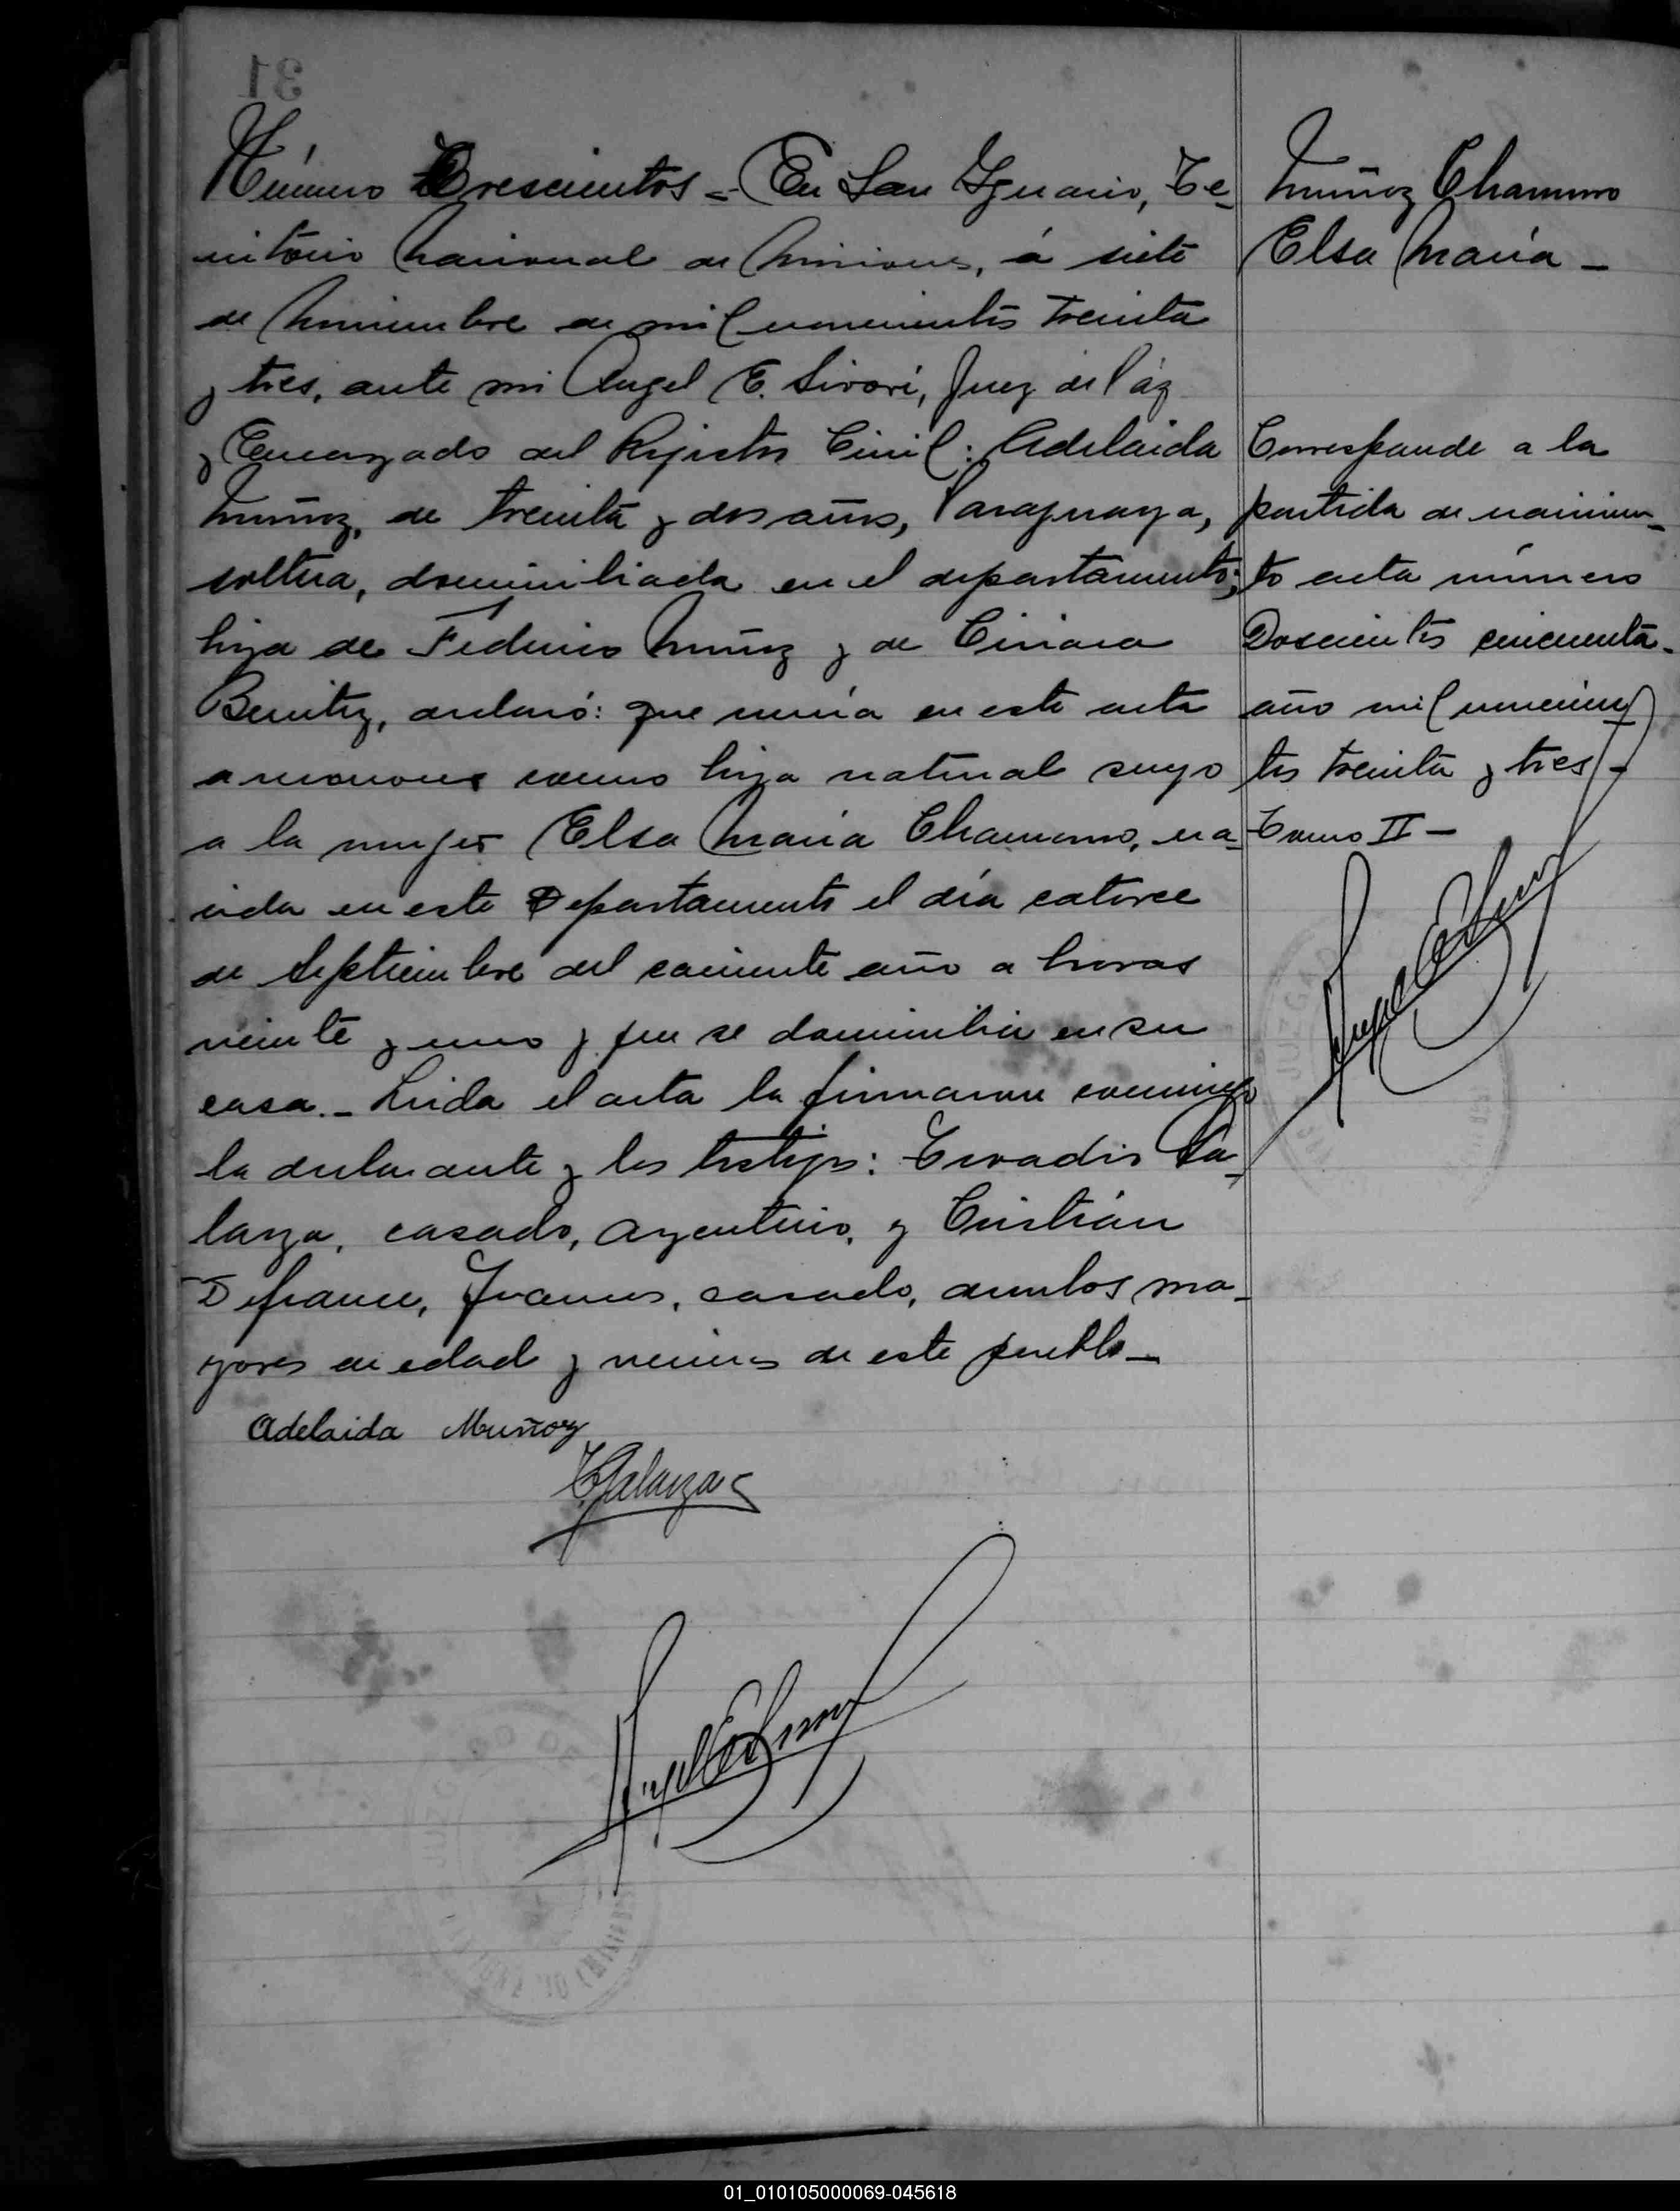 Número Trescientos = En San Ignacio, Te-
rritorio Nacional de Misiones, á siete
de Noviembre de mil novecientos treinta
y tres, ante mi Angel E. Sivori, Juez de Páz
y Encargado del Rejistro Civil: Adelaida
Muñoz, de treinta y dos años, Paraguaya,
soltera, domiciliada en el departamento;
hija de Federico Muñoz y de Ciriaca
Benitez, declaró: que venía en este acto
a reconocer como hija natural suya
a la mujer Elsa María Chamorro, na-
cida en este Departamento el día catorce
de Septiembre del corriente año a horas
veinte y uno y que se domicilia en su
casa.- Leida el acta la firmaron conmigo
la declarante y los testigos: Ga-
larza, casado, argentino, y Cristián
Defrance, frances, casado, ambos ma-
yores de edad y vecinos de este pueblo-
Adelaida Muñoz
Galarza
Muñoz Chamorro
Elsa María -
Corresponde a la
partida de nacimien-
to acta número
Doscientos cincuenta-
año mil novecien
tos treinta y tres-
Tomo II -
31
01_010105000069-045618